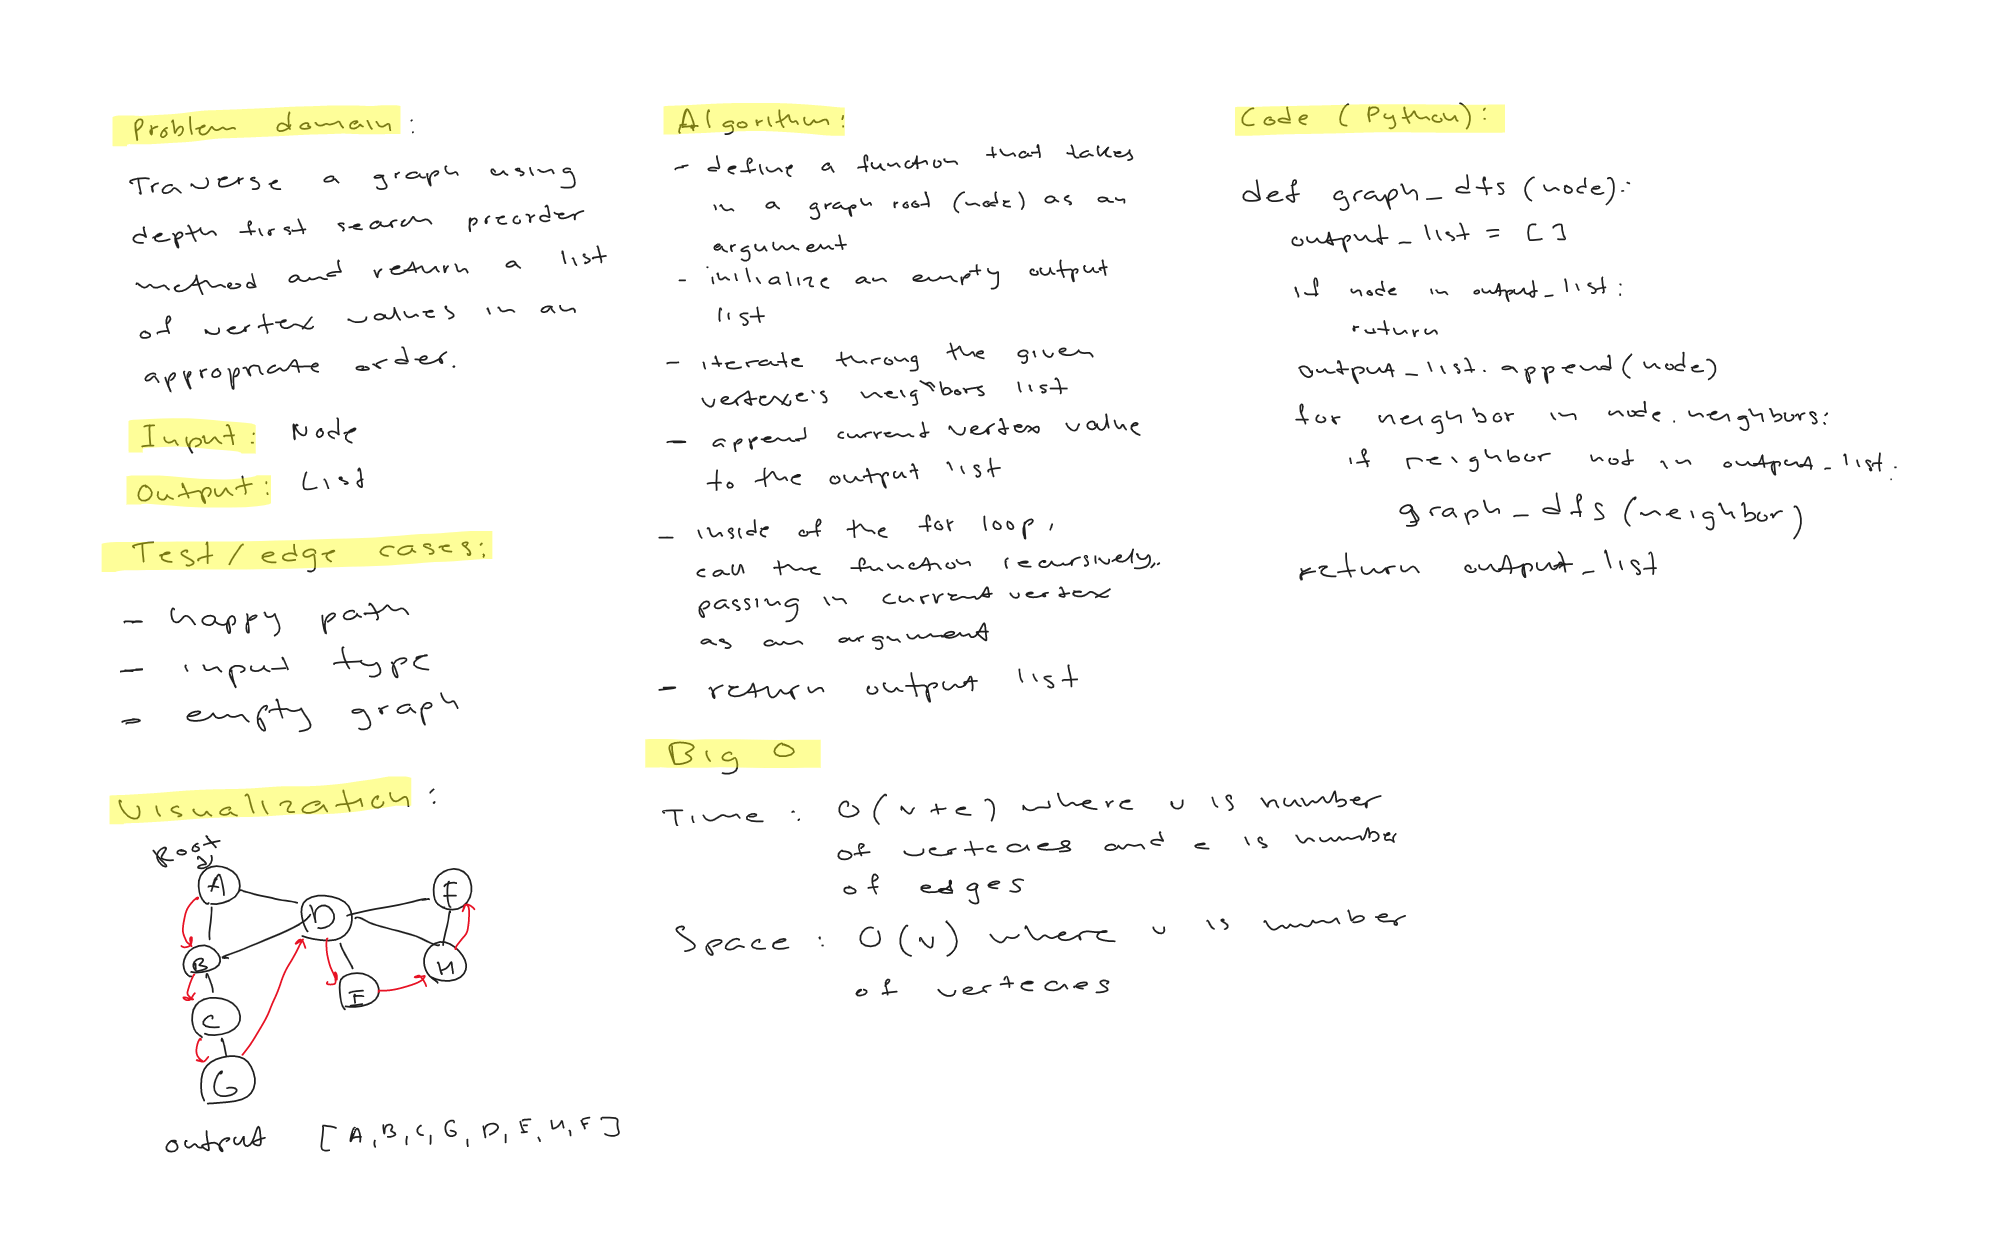 Problem domain:
Traverse a graph using
depth first search preorder
method and return a list
of vertex values in an
appropriate order.
Input: Node
Output: List
Test/edge cases:
- happy path
- input type
- empty graph
Visualization:
Root
A
D
F
B
H
E
C
G
output [A, B, C, G, D, E, H, F]
Algorithm:
- define a function that takes
in a graph root (node) as an
argument
- initialize an empty output
list
- iterate throug the given
vertexe's neighbors list
- append current vertex value
to the output list
- inside of the for loop,
call the function recursively,
passing in current vertex
as an argument
- return output list
Big O
Time: O(v+e) where v is number
of vertecies and e is number
of edges
Space: O(v) where v is number
of vertecies
Code (Python):
def graph_dfs(node):
output_list = []
if node in output_list:
return
output_list.append(node)
for neighbor in node.neighbors:
if neighbor not in output_list:
graph_dfs(neighbor)
return output_list